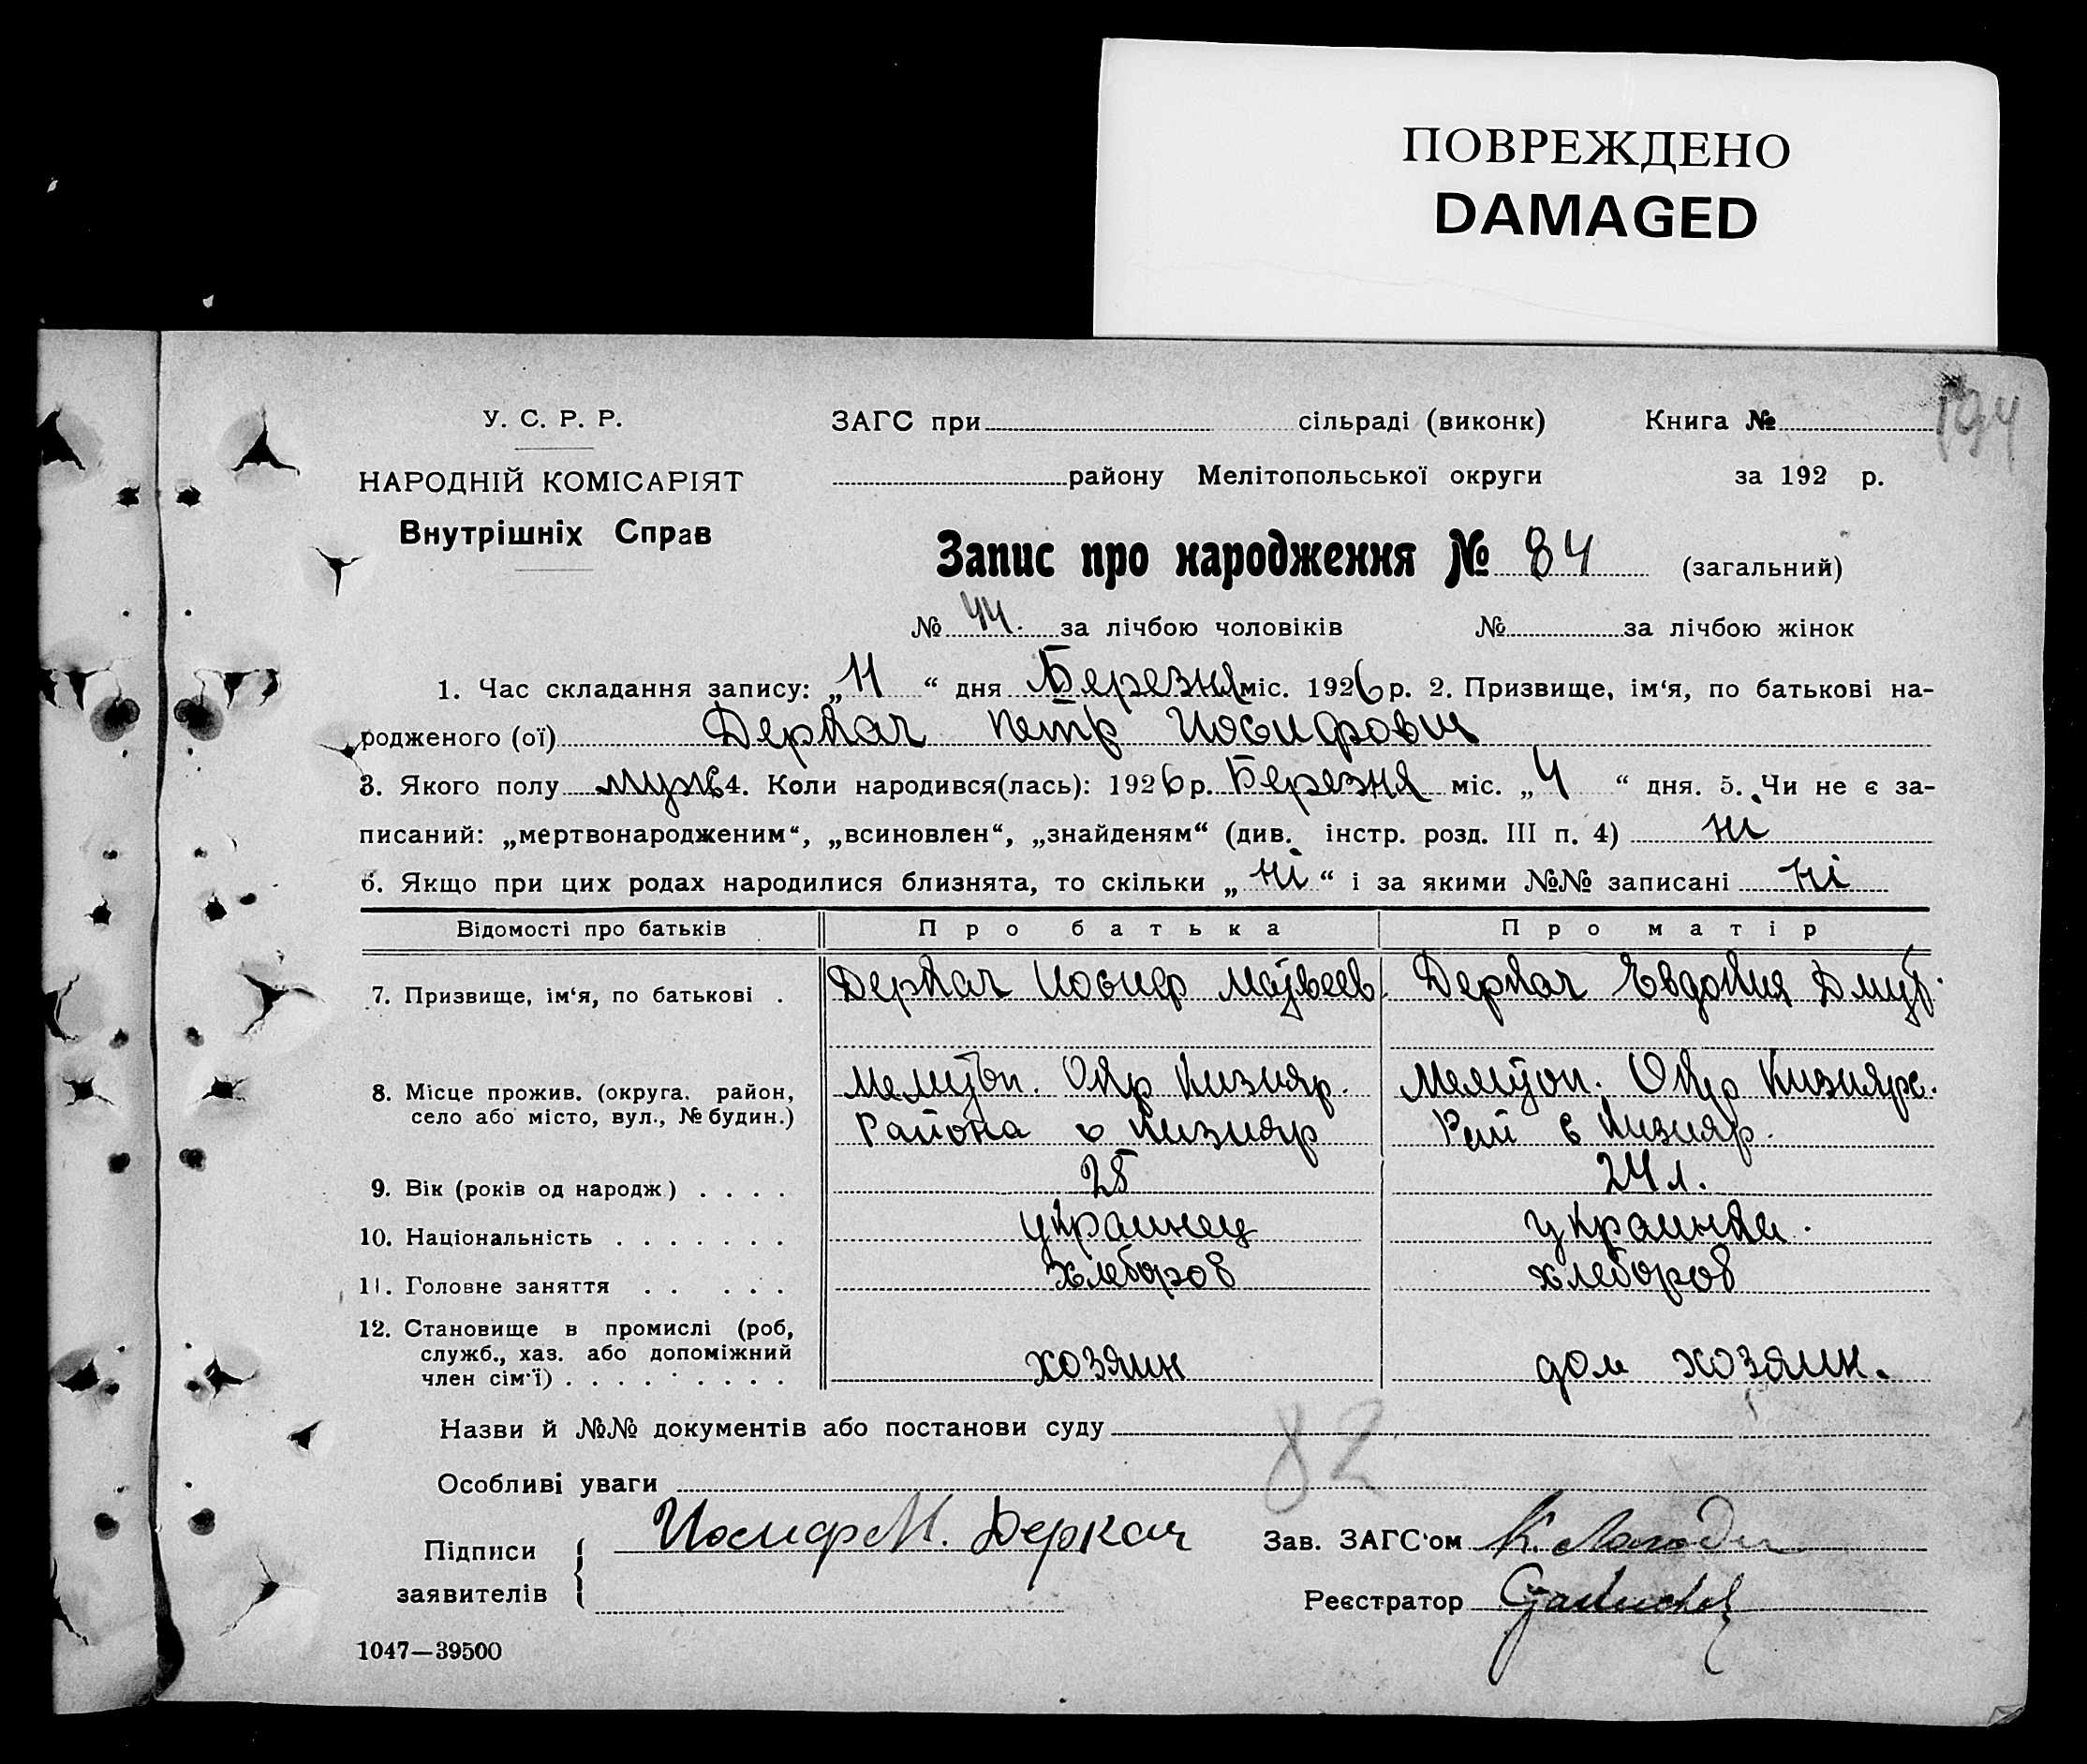 ПОВРЕЖДЕНО
DAMAGED
194
У. С. Р. Р.
НАРОДНІЙ КОМІСАРІЯТ
Внутрішніх Справ
ЗАГС при сільраді (виконк) Книга №
району Мелітопольської округи за 192 р.
Запис про народження № 84 (загальний)
№ 44. за лічбою чоловіків № за лічбою жінок
1. Час складання запису: „11“ дня Березня міс. 1926 р. 2. Призвище, ім‘я, по батькові на-
родженого (ої) Деркач Петр Иосифович
3. Якого полу муж 4. Коли народився(лась): 1926 р. Березня міс. „4“ дня. 5. Чи не є за-
писаний: „мертвонародженим“, „всиновлен“, „знайденям“ (див. інстр. розд. III п. 4) ні
6. Якщо при цих родах народилися близнята, то скільки „ні“ і за якими №№ записані ні
Відомості про батьків Про батька Про матір
7. Призвище, ім‘я, по батькові . Деркач Иосиф Матвеев. Деркач Евдокия Дмит.
8. Місце прожив. (округа. район, Мелитоп. Окр Кизияр. Мелитоп. Окр Кизиярс.
село або місто, вул., № будин.) Района с Кизияр Рай с Кизияр.
9. Вік (років од народж) . . . . 25 24 л.
10. Національність . . . . . . . украинец украинка.
11. Головне заняття . . . . . хлебороб хлебороб
12. Становище в промислі (роб,
служб., хаз. або допоміжний
член сім‘ї) . . . . . . . . . хозяин дом хозяин.
Назви й №№ документів або постанови суду
82
Особливі уваги
Підписи Иосиф М. Деркач Зав. ЗАГС‘ом
заявителів Реєстратор
1047—39500